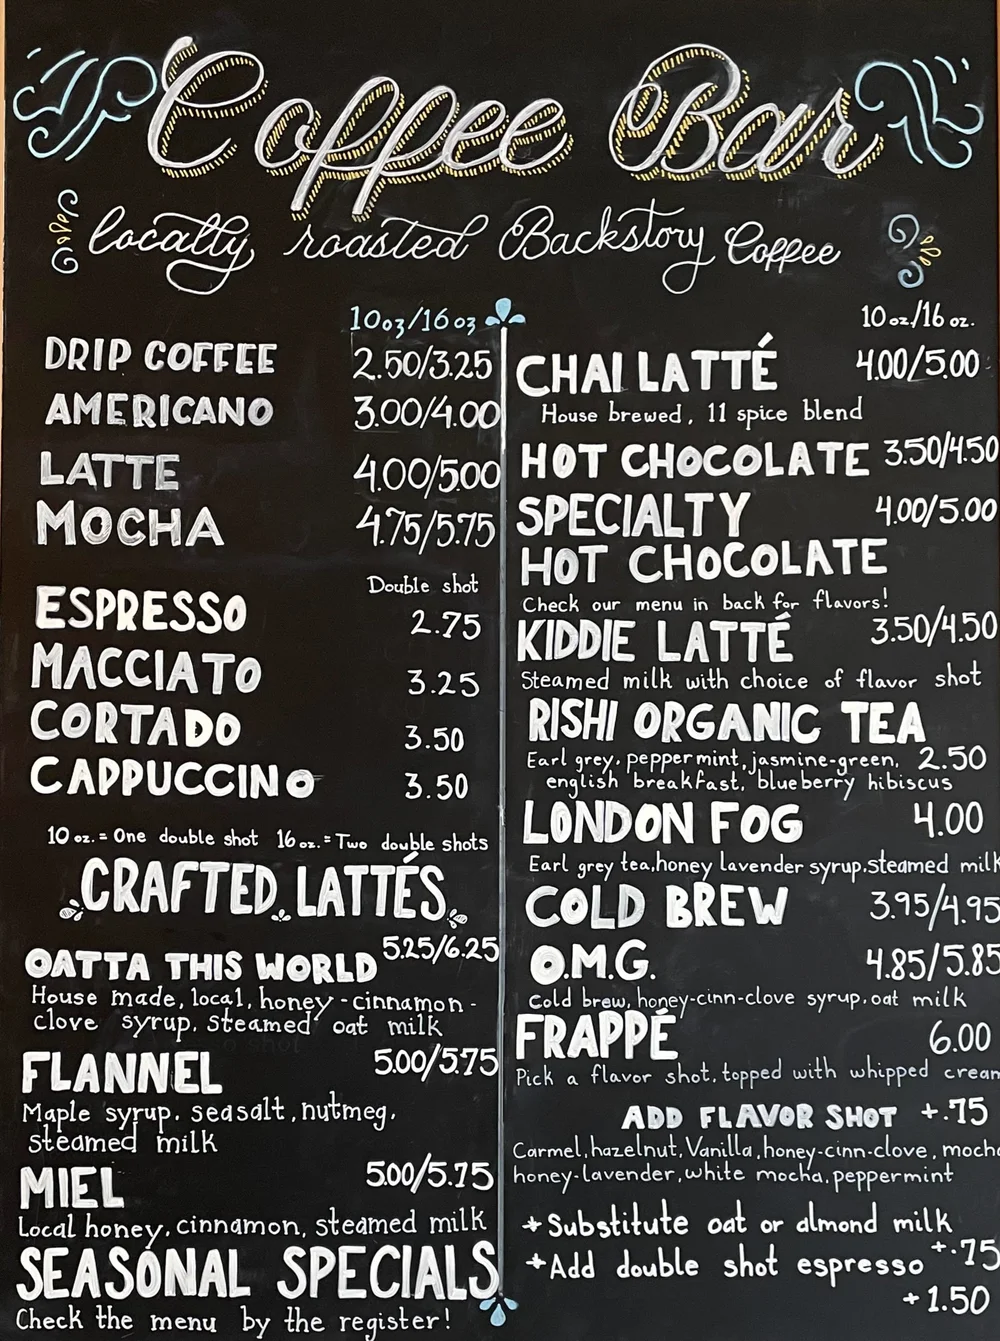 Coffee Bar
locally roasted Backstory Coffee
10oz/16oz
DRIP COFFEE 2.50/3.25
AMERICANO 3.00/4.00
LATTE 4.00/500
MOCHA 4.75/5.75
Double shot
ESPRESSO 2.75
MACCIATO 3.25
CORTADO 3.50
CAPPUCCINO 3.50
10 oz. = One double shot 16 oz. = Two double shots
CRAFTED LATTÉS
OATTA THIS WORLD 5.25/6.25
House made, local, honey-cinnamon-
clove syrup, steamed oat milk
FLANNEL 5.00/5.75
Maple syrup, seasalt, nutmeg,
steamed milk
MIEL 5.00/5.75
Local honey, cinnamon, steamed milk
SEASONAL SPECIALS
Check the menu by the register!
10 oz./16 oz.
CHAI LATTÉ 4.00/5.00
House brewed, 11 spice blend
HOT CHOCOLATE 3.50/4.50
SPECIALTY 4.00/5.00
HOT CHOCOLATE
Check our menu in back for flavors!
KIDDIE LATTÉ 3.50/4.50
Steamed milk with choice of flavor shot
RISHI ORGANIC TEA
Earl grey, peppermint, jasmine-green, 2.50
english breakfast, blueberry hibiscus
LONDON FOG 4.00
Earl grey tea, honey lavender syrup, steamed milk
COLD BREW 3.95/4.95
O.M.G. 4.85/5.85
Cold brew, honey-cinn-clove syrup, oat milk
FRAPPÉ 6.00
Pick a flavor shot, topped with whipped cream
ADD FLAVOR SHOT +.75
Carmel, hazelnut, Vanilla, honey-cinn-clove, mocha
honey-lavender, white mocha, peppermint
+Substitute oat or almond milk
+.75
+Add double shot espresso
+1.50